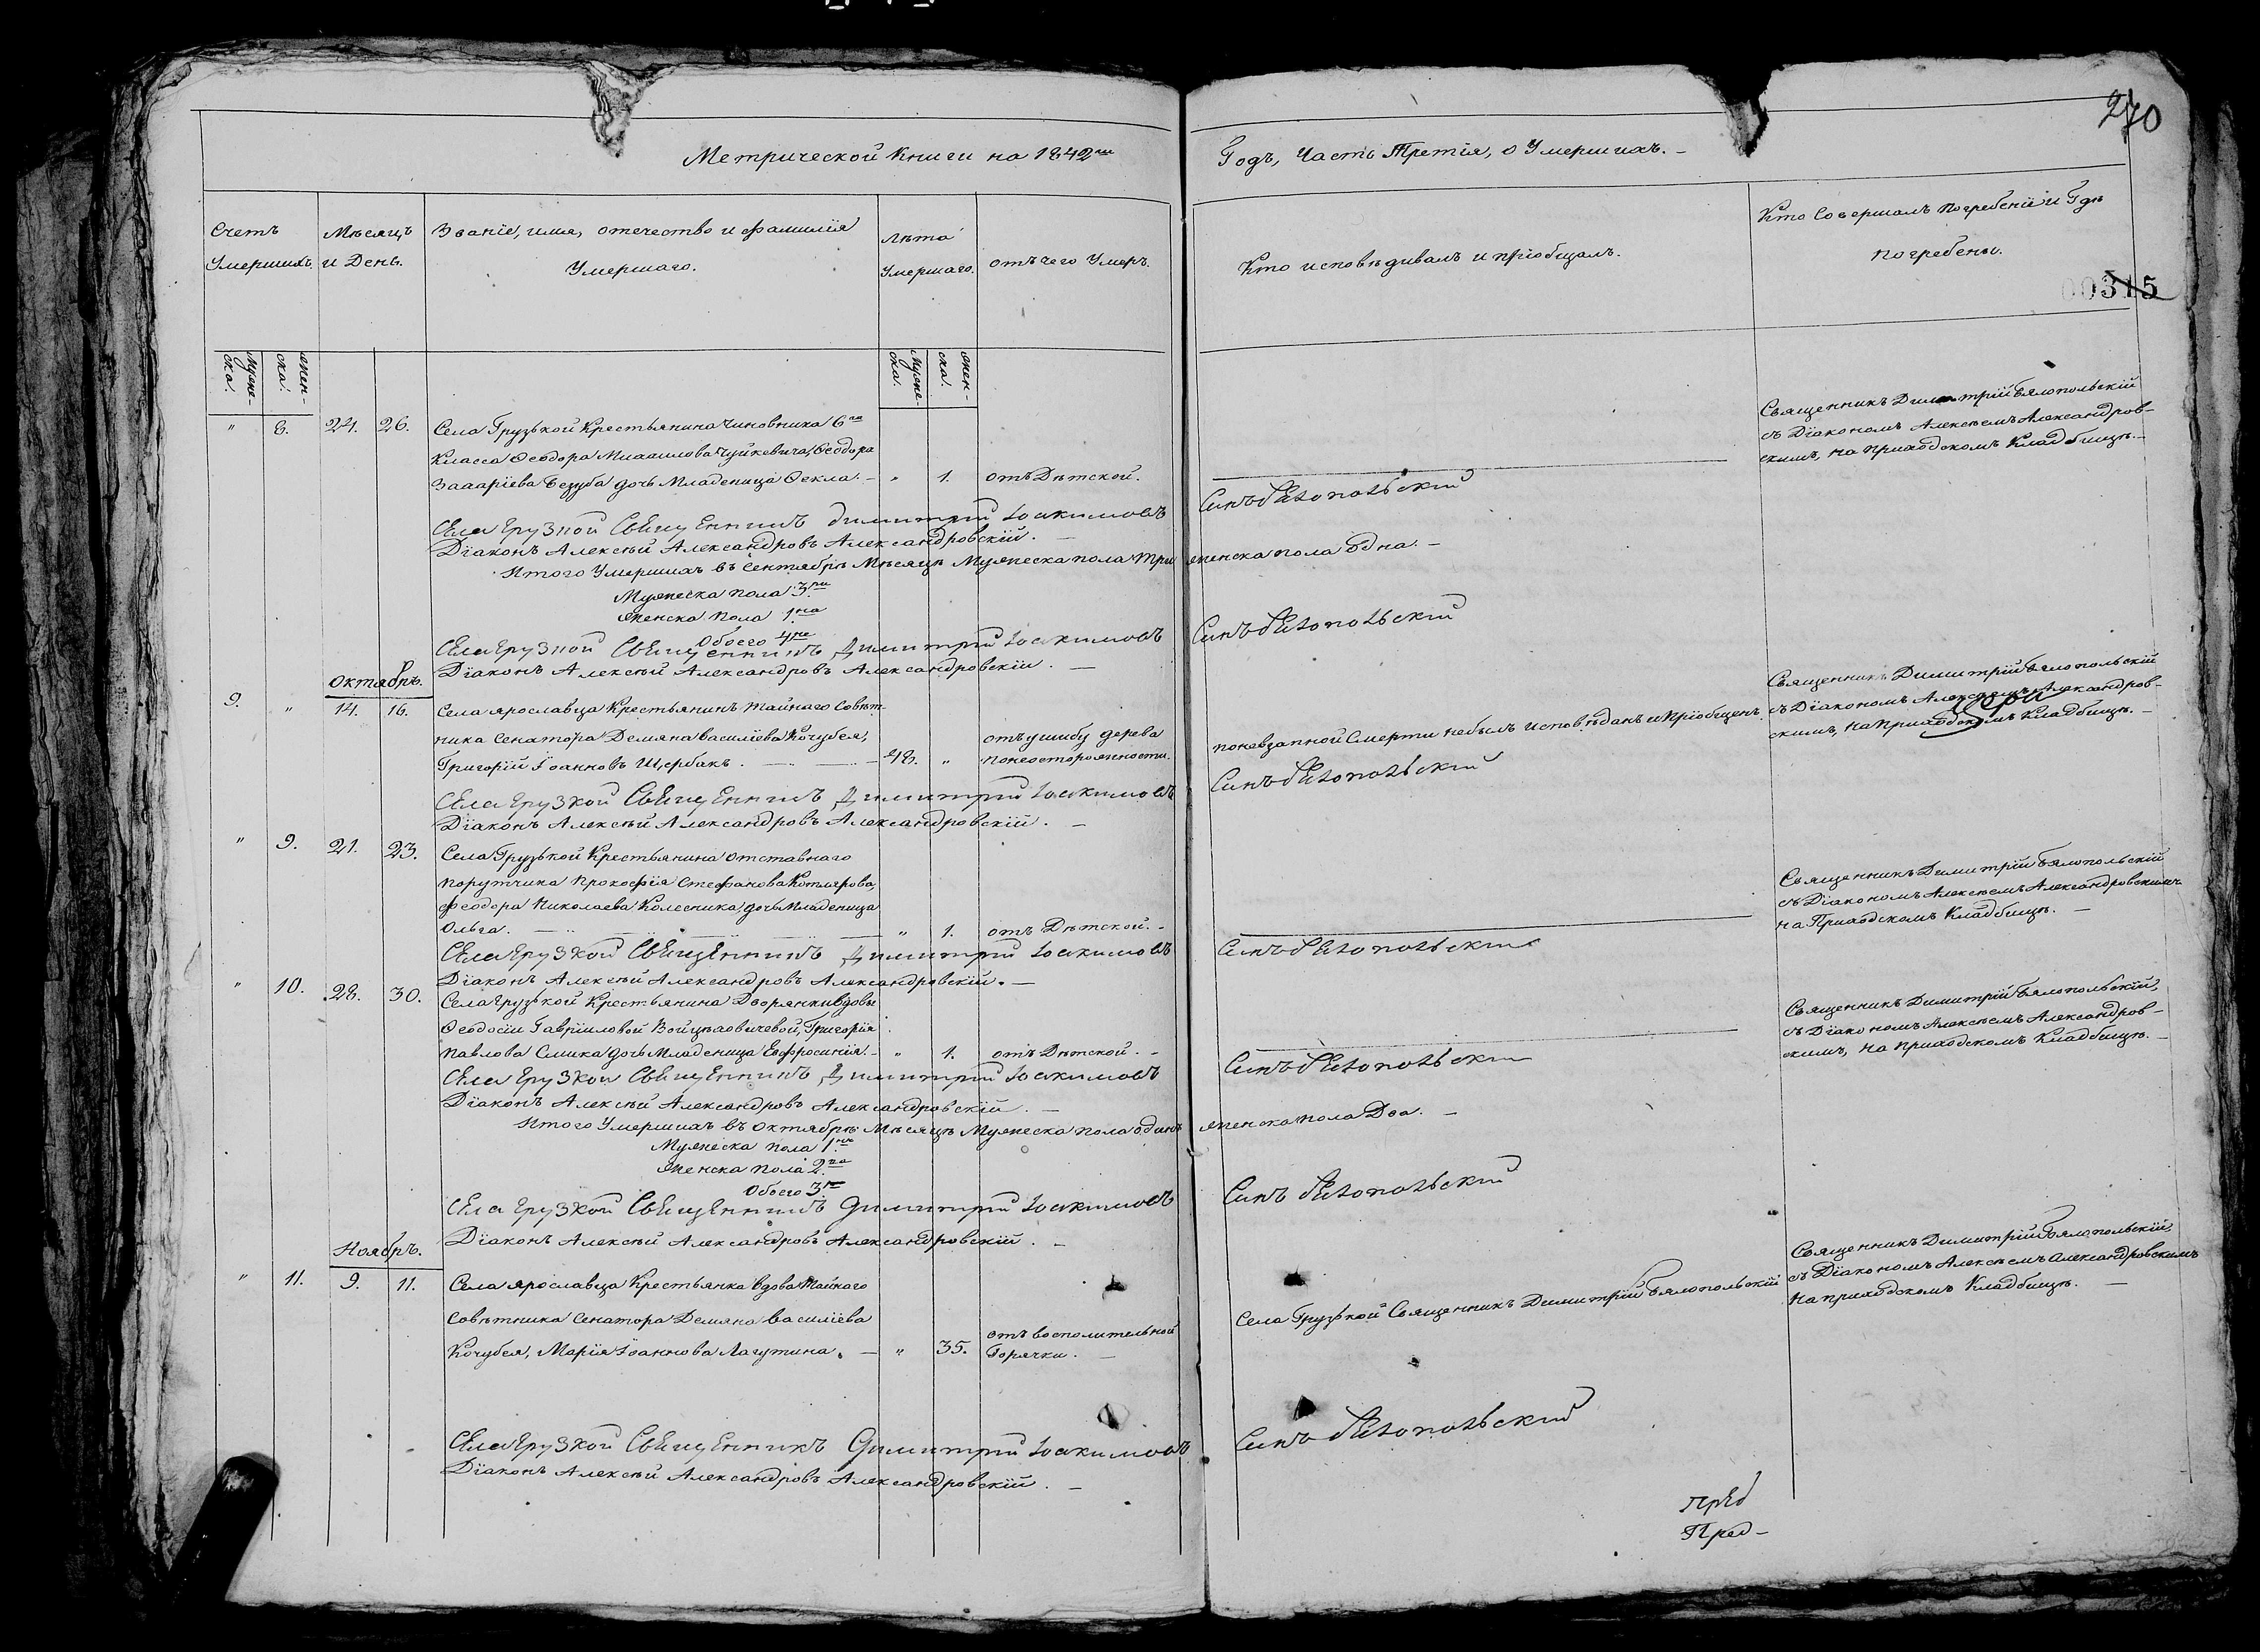 270
Метрической Книги на 1842й Годъ, Часть Третія, о Умершихъ.
00315
Счетъ Умершихъ.
Мѣсяцъ и День.
Званіе, имя, отечество и фамилія Умершаго.
Лѣта Умершаго.
отъ чего Умеръ.
Кто исповѣдивалъ и пріобщалъ.
Кто Совершалъ погребеніе и Гдѣ погребены.
Мужеска.
женска.
Мужеска.
женска.
" 8. 24. 26. Села Грузькой Крестьянина Чиновника 6го
Класса Феодора Михаилова Чуйкевича, Феодора
Захаріева Беззуба дочь Младеница Фекла. - " 1. отъ Дѣтской.
Священникъ Димитрій Бялопольскій
съ Діакономъ Алексѣемъ Александров-
скимъ, на приходскомъ Кладбищѣ. -
Села Грузкой Священникъ Димитрій Іоакимовъ Синъ Бѣлопольский
Діаконъ Алексѣй Александровъ Александровскій. -
Итого Умершихъ въ Сентябрѣ Мѣсяцѣ Мужеска пола три женска пола одна. -
Мужеска пола 3ри
Женска пола 1на
Обоего 4ре
Села Грузкой Священникъ Димитрій Іоакимовъ Синъ Бѣлопольский
Діаконъ Алексѣй Александровъ Александровскій. -
Октябрь.
9. " 14. 16. Села Ярославца Крестьянинъ Тайнаго Совѣт-
ника Сенатора Демяна Василіева Кочубея,
Григорій Іоанновъ Щербакъ. - 48. " отъ ушибу дерева
понеосторожности.
поневзапной Смерти небылъ исповѣданъ и пріобщенъ.
Священникъ Димитрій Бялопольскій
съ Діакономъ Алексѣемъ Александров-
скимъ, на приходскомъ Кладбищѣ. -
Села Грузкой Священникъ Димитрій Іоакимовъ Синъ Бѣлопольский
Діаконъ Алексѣй Александровъ Александровскій. -
" 9. 21. 23. Села Грузькой Крестьянина отставнаго
порутчика Прокофія Стефанова Котлярова,
Феодора Николаева Колесника, дочь Младеница
Ольга. - " 1. отъ Дѣтской. -
Священникъ Димитрій Бялопольскій
съ Діакономъ Алексѣемъ Александровскимъ
на Приходскомъ Кладбищѣ. -
Села Грузкой Священникъ Димитрій Іоакимовъ Синъ Бѣлопольский
Діаконъ Алексѣй Александровъ Александровскій. -
" 10. 28. 30. Села Грузкой Крестьянина Дворянки вдовы
Феодосіи Гавріиловой Войцѣховичевой, Григорія
Павлова Слика дочь Младеница Евфросинія. - " 1. отъ Дѣтской. -
Священникъ Димитрій Бялопольскій,
съ Діакономъ Алексѣемъ Александров-
скимъ, на приходскомъ Кладбищѣ. -
Села Грузкой Священникъ Димитрій Іоакимовъ Синъ Бѣлопольский
Діаконъ Алексѣй Александровъ Александровскій. -
Итого Умершихъ въ Октябрѣ Мѣсяцѣ Мужеска пола одинъ женска пола Два. -
Мужеска пола 1нъ
Женска пола 2ва
Обоего 3ри
Села Грузкой Священникъ Димитрій Іоакимовъ Синъ Бѣлопольский
Діаконъ Алексѣй Александровъ Александровскій. -
Ноябрь.
" 11. 9. 11. Села Ярославца Крестьянка вдова Тайнаго
Совѣтника Сенатора Демяна Василіева
Кочубея, Марія Іоаннова Лагутина. - " 35. отъ восполительной
Горячки. -
Села Грузькой Священникъ Димитрій Бялопольскій
Священникъ Димитрій Бялопольскій,
съ Діакономъ Алексѣемъ Александровскимъ
на приходскомъ Кладбищѣ. -
Села Грузкой Священникъ Димитрій Іоакимовъ Синъ Бѣлопольский
Діаконъ Алексѣй Александровъ Александровскій. -
прѣд
Пред-